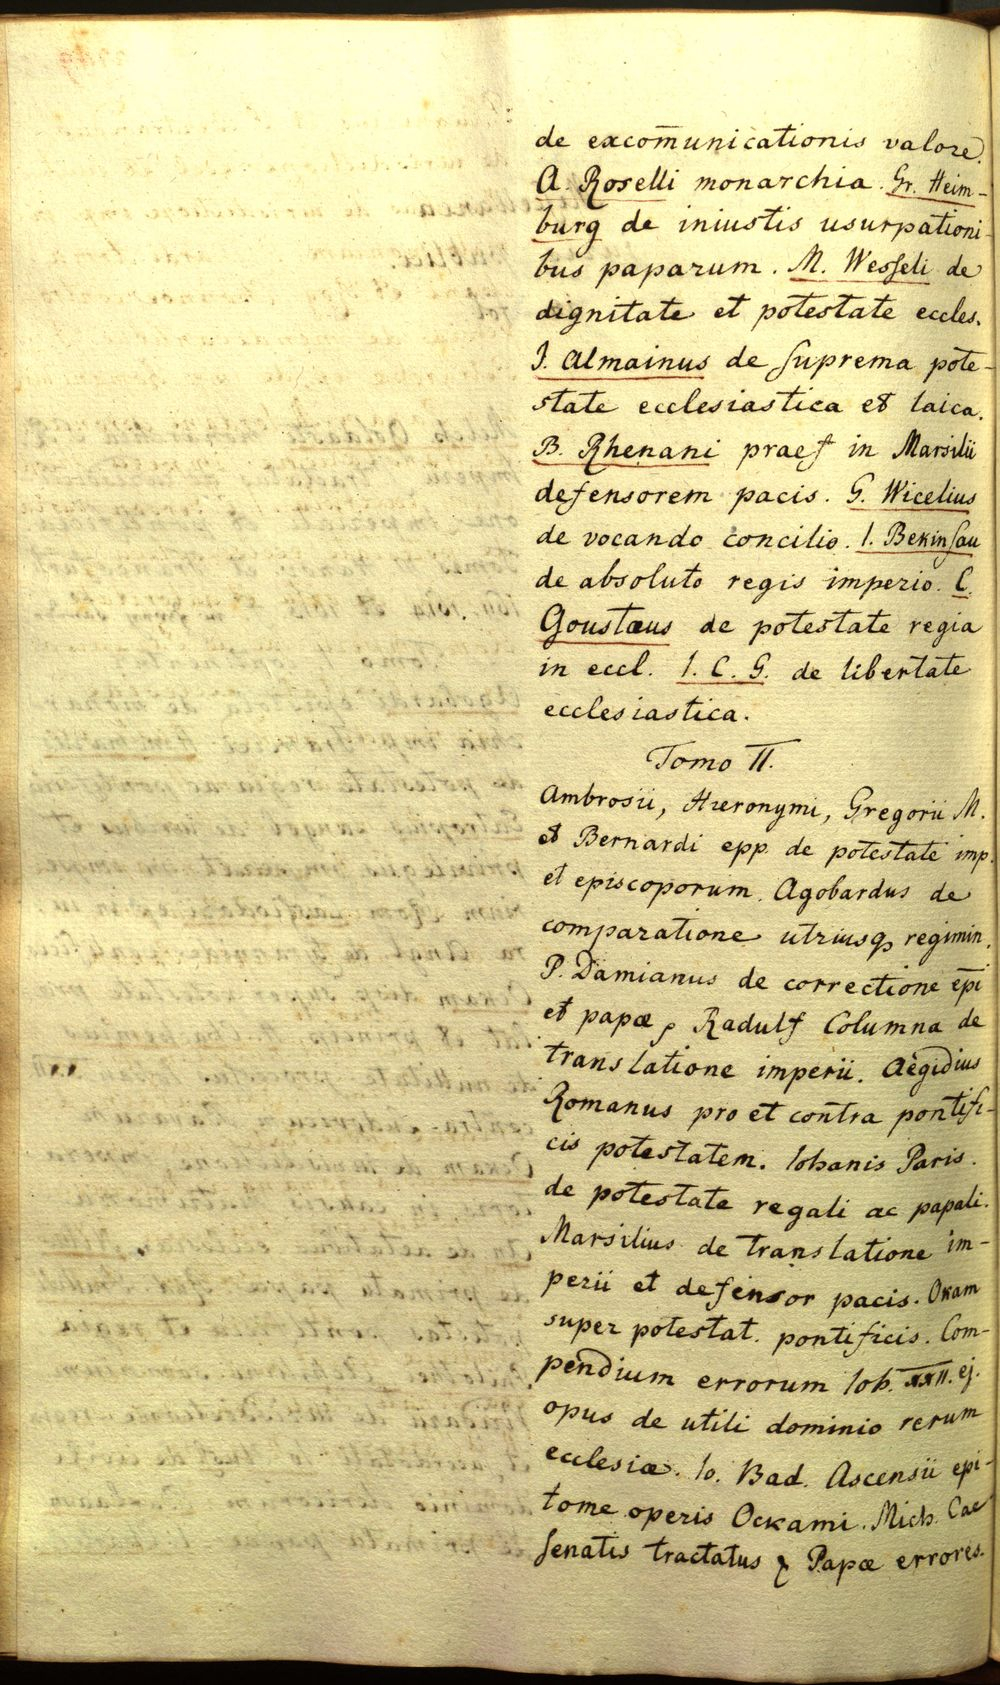 de excom̄unicationis valore.
A. Roselli monarchia. Gr. Heim-
burg de iniustis usurpationi-
bus paparum. M. Wesseli de
dignitate et potestate eccles.
J. Almainus de suprema pote-
state ecclesiastica et laica.
B. Rhenani praef in Marsilii
defensorem pacis. G. Wicelius
de vocando concilio. I. Bekinsau
de absoluto regis imperio. C.
Goustæus de potestate regia
in eccl. I. C. G. de libertate
ecclesiastica.
Tomo II.
Ambrosii, Hieronymi, Gregorii M.
et Bernardi epp. de potestate imp.
et episcoporum. Agobardus de
comparatione utriusq regimin.
P. Damianus de correctione ep̄i
et papæ, Radulf Columna de
translatione imperii. Aegidius
Romanus pro et contra pontifi-
cis potestatem. Iohanis Paris.
de potestate regali ac papali.
Marsilius de translatione im-
perii et defensor pacis. Okam
super potestat. pontificis. Com-
pendium errorum Ioh. XXII. ej.
opus de utili dominio rerum
ecclesiæ. Io. Bad. Ascensii epi-
tome operis Ockami. Mich. Cae
senatis tractatus Papæ errores.